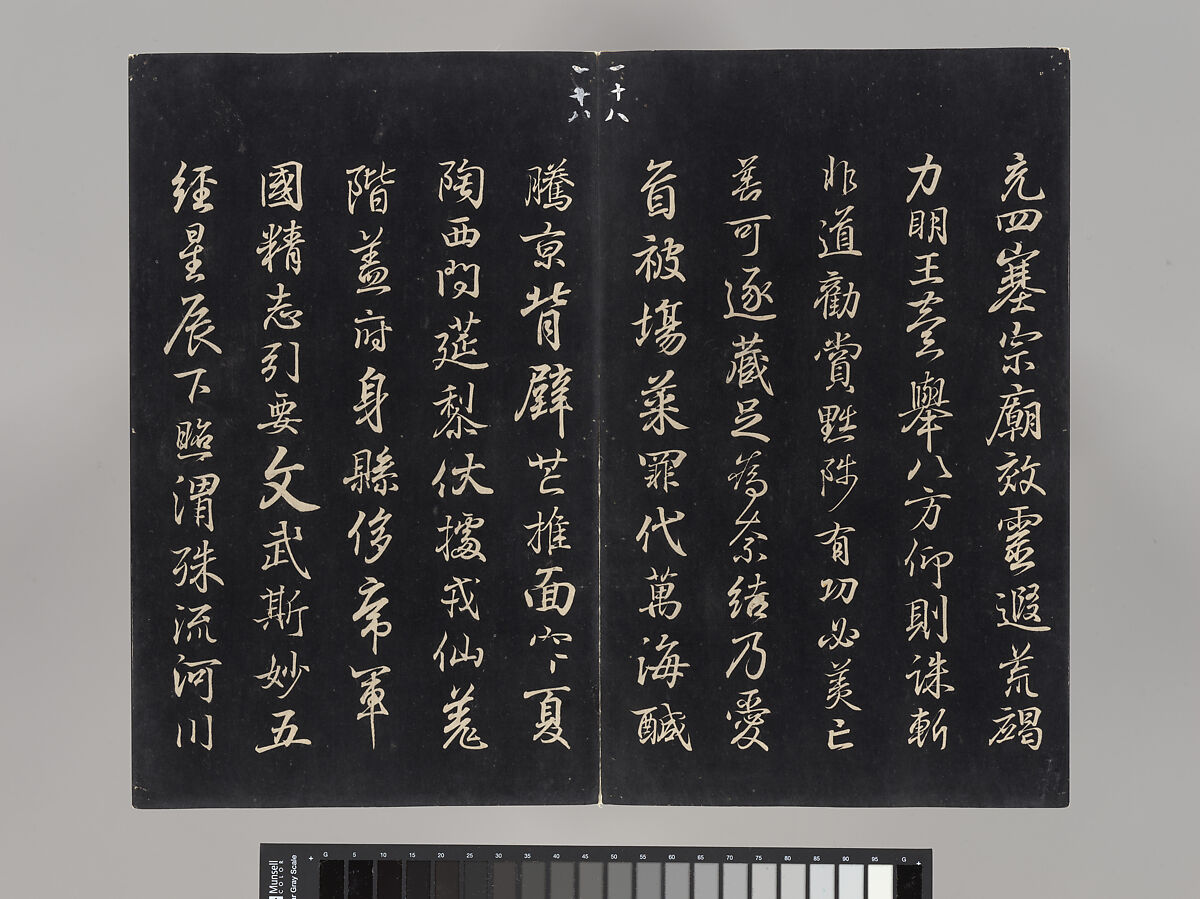 一十八
充四塞宗廟效靈遐荒竭
力明王臺舉八方仰則誅斬
非道勸賞黜陟有功必美亡
善可逐藏足為奈結乃愛
首被場菜罪代萬海鹹
一十八
騰京背壁芒推面穴夏
陶西門莚黎伏據戎仙羌
階蓋府身縣侈帝軍
國精志引要文武斯妙五
經星辰下照渭殊流河川
Munsell
COLOR
Gray Scale
G 5 10 15 20 25 30 35 40 45 50 55 60 65 70 75 80 85 90 95 G